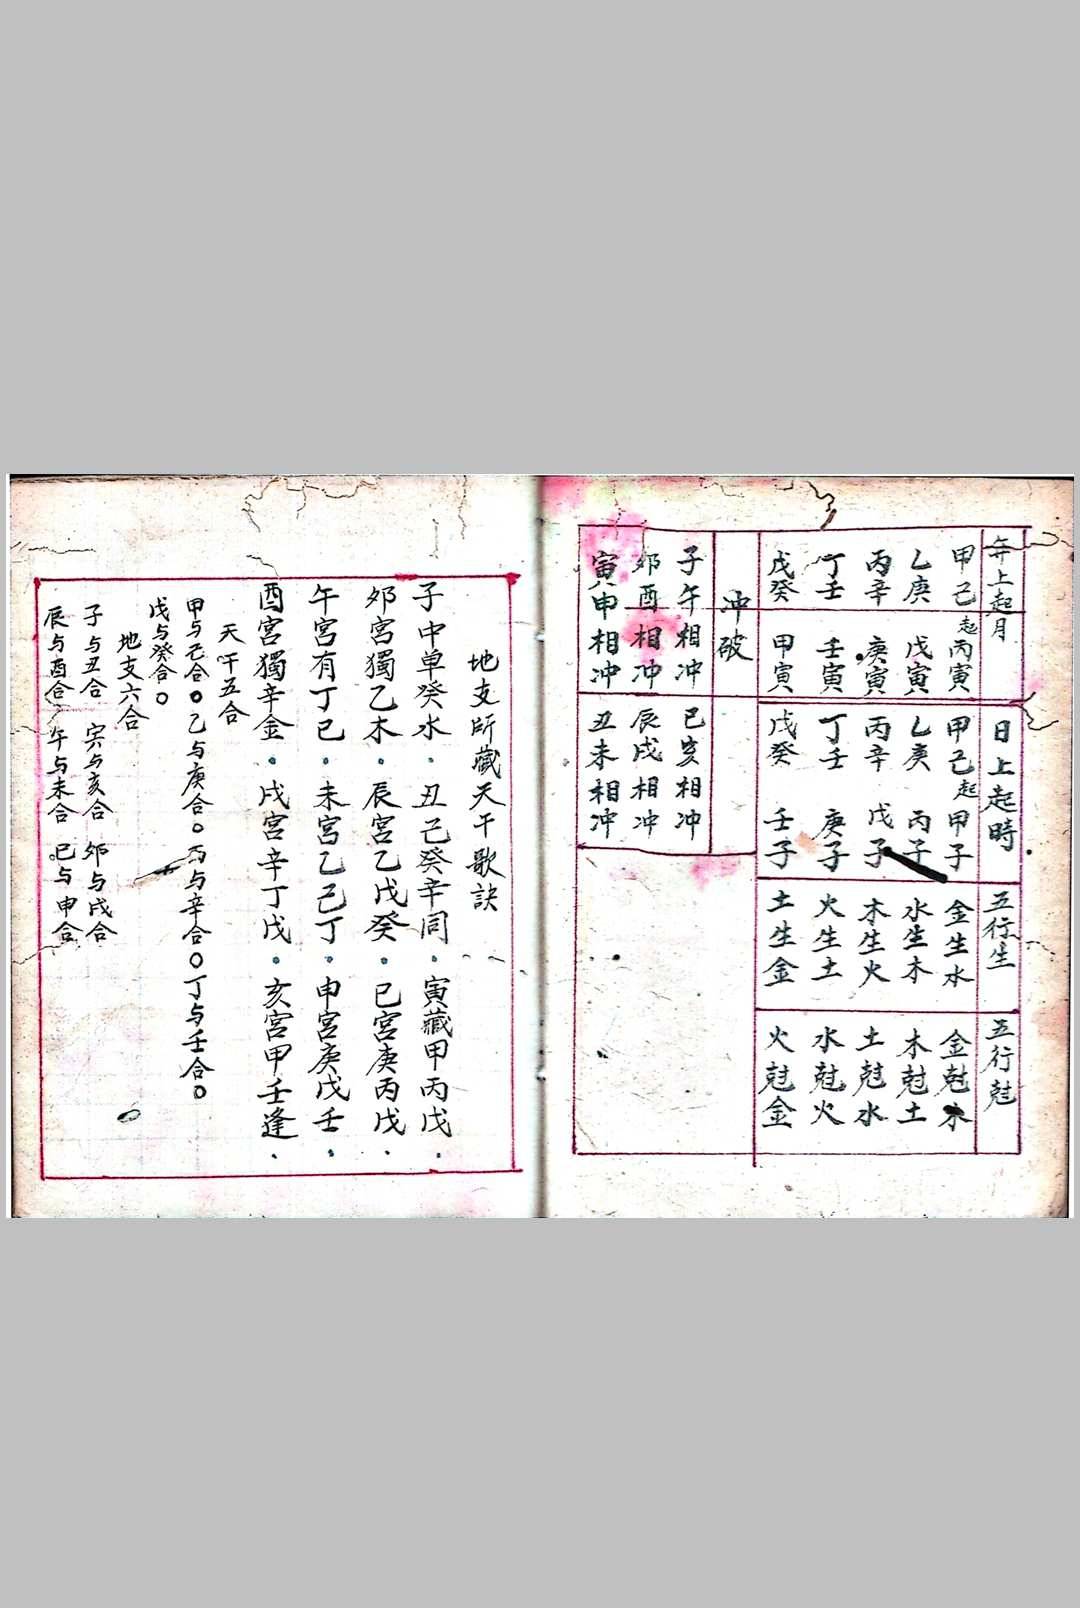 年上起月
甲己起丙寅
乙庚 戊寅
丙辛 庚寅
丁壬 壬寅
戊癸 甲寅
日上起時
甲己起甲子
乙庚 丙子
丙辛 戊子
丁壬 庚子
戊癸 壬子
五行生
金生水
水生木
木生火
火生土
土生金
五行尅
金尅木
木尅土
土尅水
水尅火
火尅金
冲破
子午相冲
卯酉相冲
寅申相冲
巳亥相冲
辰戌相冲
丑未相冲
地支所藏天干歌訣
子中單癸水．丑己癸辛同．寅藏甲丙戊．
卯宮獨乙木．辰宮乙戊癸．巳宮庚丙戊．
午宮有丁己．未宮乙己丁．申宮庚戊壬．
酉宮獨辛金．戌宮辛丁戊．亥宮甲壬逢．
天干五合
甲与己合。乙与庚合。丙与辛合。丁与壬合。
戊与癸合。
地支六合
子与丑合 寅与亥合 卯与戌合
辰与酉合 午与未合 巳与申合